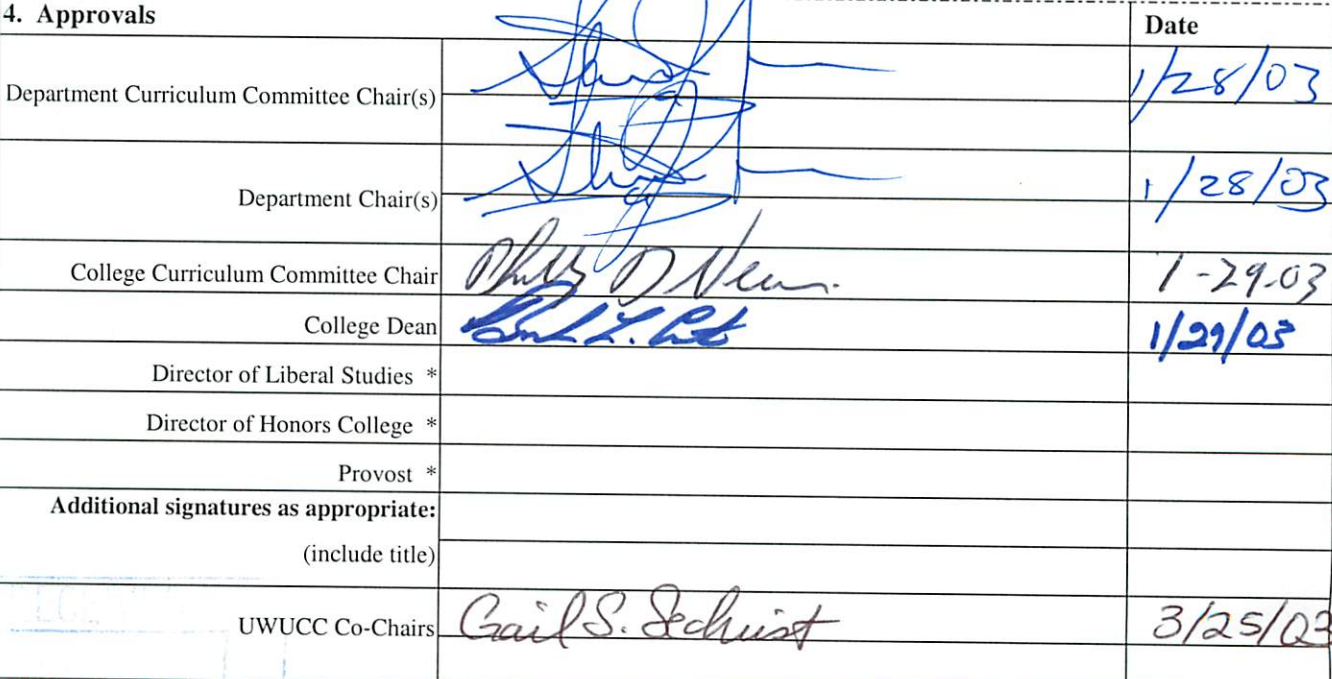 4. Approvals Date
Department Curriculum Committee Chair(s) 1/28/03
Department Chair(s) 1/28/03
College Curriculum Committee Chair 1-29-03
College Dean 1/29/03
Director of Liberal Studies *
Director of Honors College *
Provost *
Additional signatures as appropriate:
(include title)
UWUCC Co-Chairs Gail S. Sechrist 3/25/03